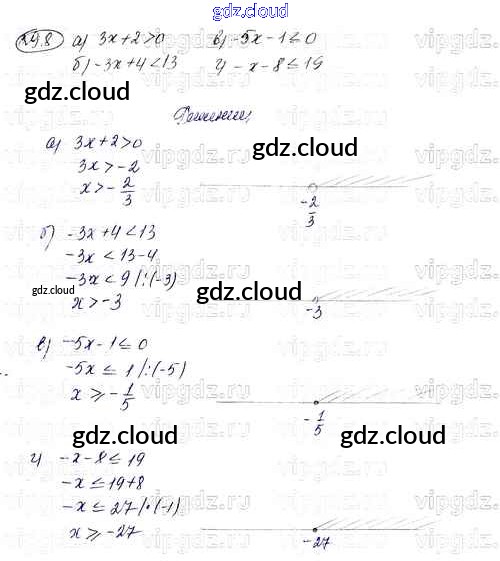 gdz.cloud
29.8 а) 3x+2>0 в) -5x-1≤0
б) -3x+4<13 г) -x-8≤19
gdz.cloud
Решение
gdz.cloud
а) 3x+2>0
3x>-2
x>-2/3
-2/3
б) -3x+4<13
-3x<13-4
-3x<9 |:(-3)
gdz.cloud
gdz.cloud
x>-3
-3
в) -5x-1≤0
-5x≤1 |:(-5)
x≥-1/5
-1/5
gdz.cloud
gdz.cloud
г) -x-8≤19
-x≤19+8
-x≤27 |·(-1)
x≥-27
-27
vipgdz.ru